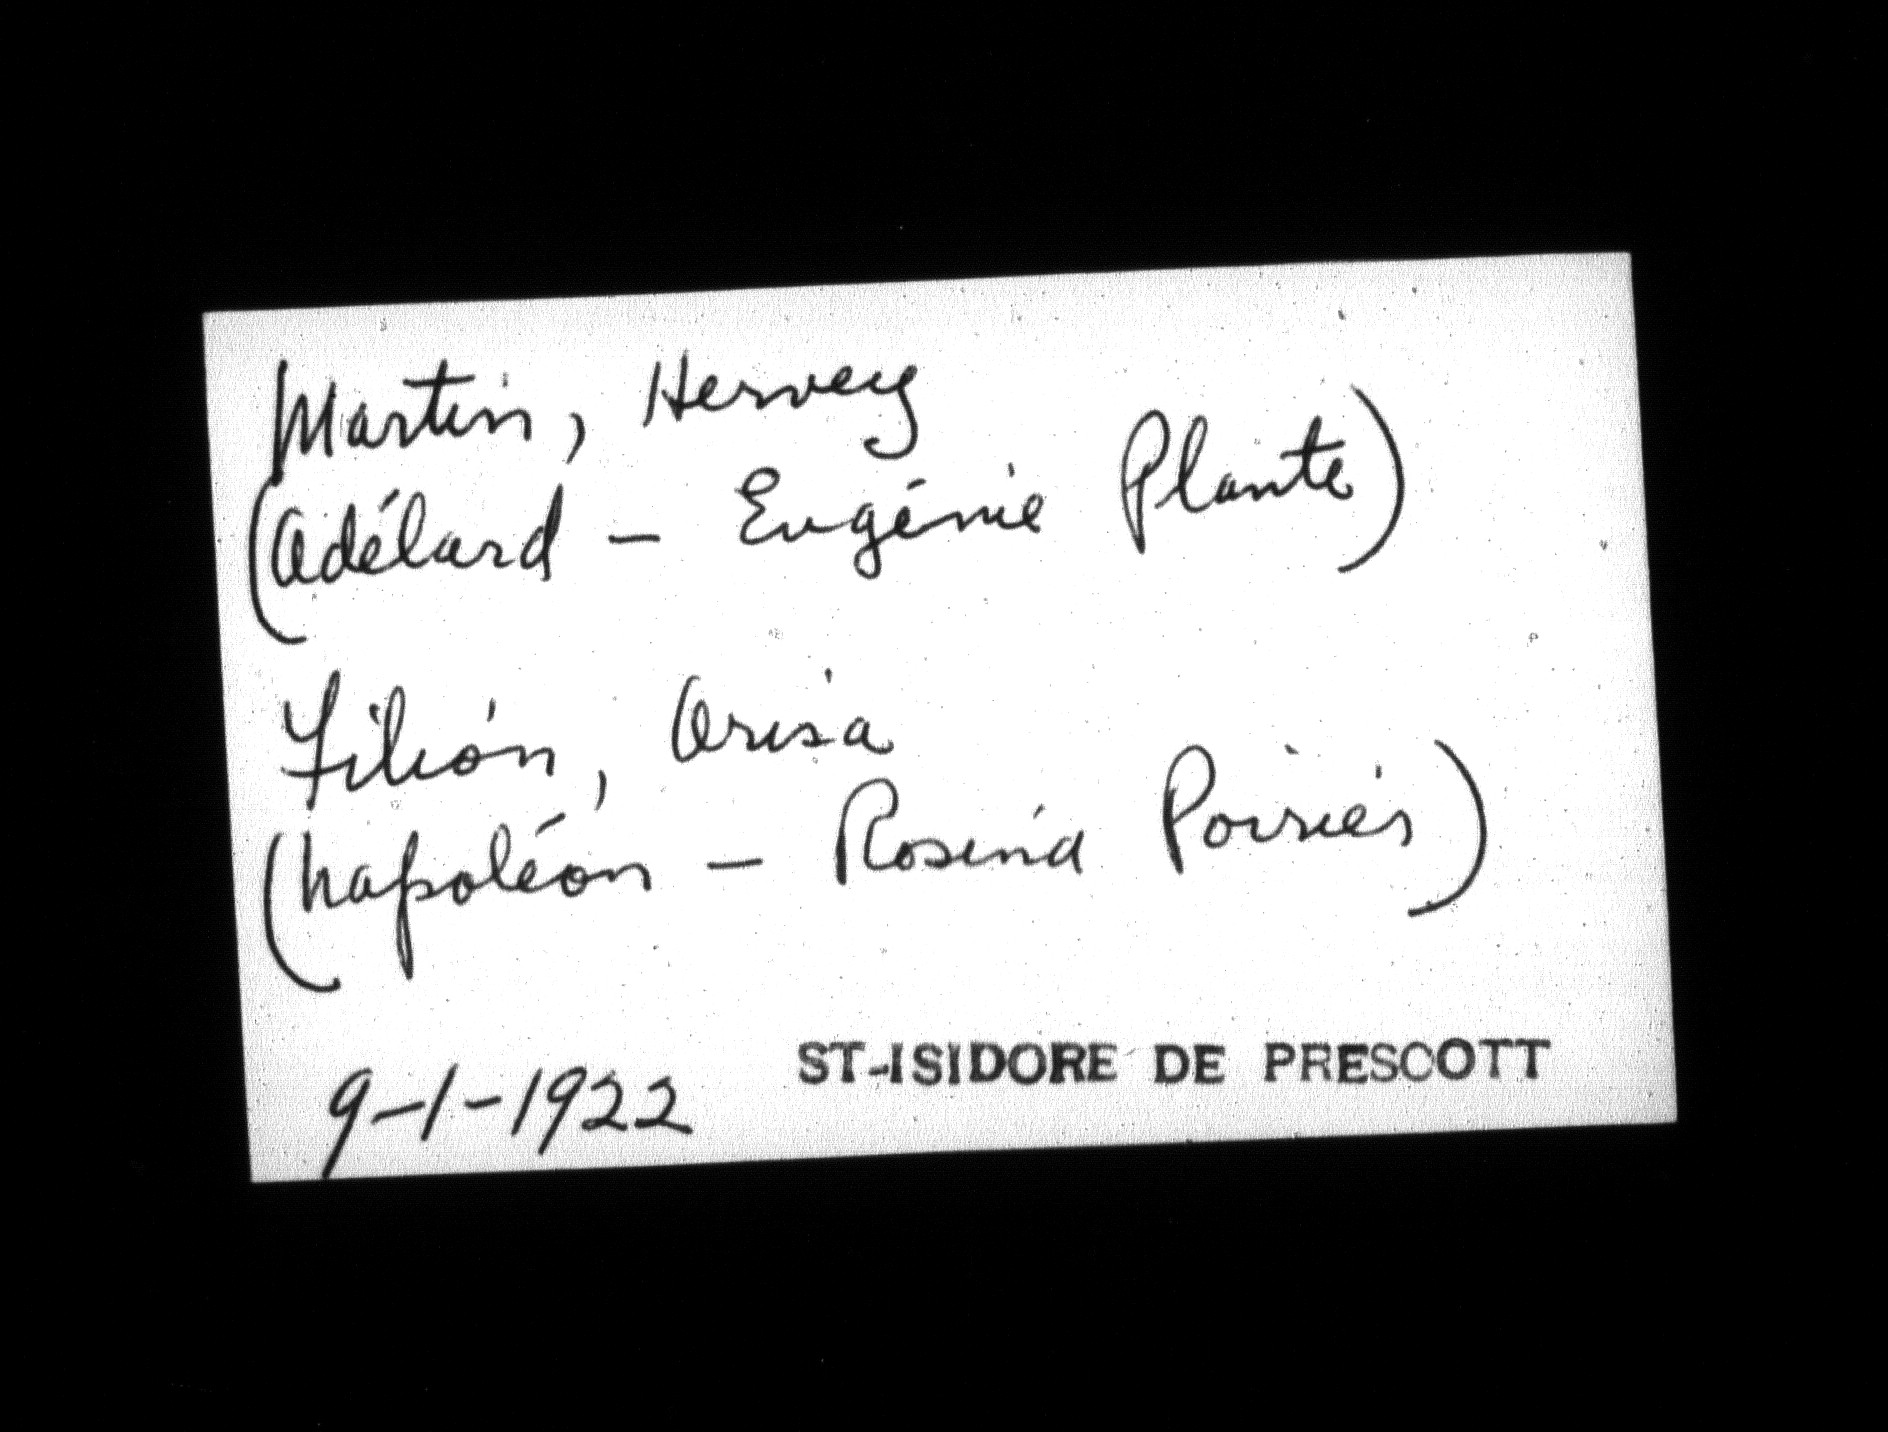 Martin, Hervey
(Adélard - Eugénie Plante)
Filion, Orisa
(Napoléon - Rosina Poirier)
9-1-1922 ST-ISIDORE DE PRESCOTT